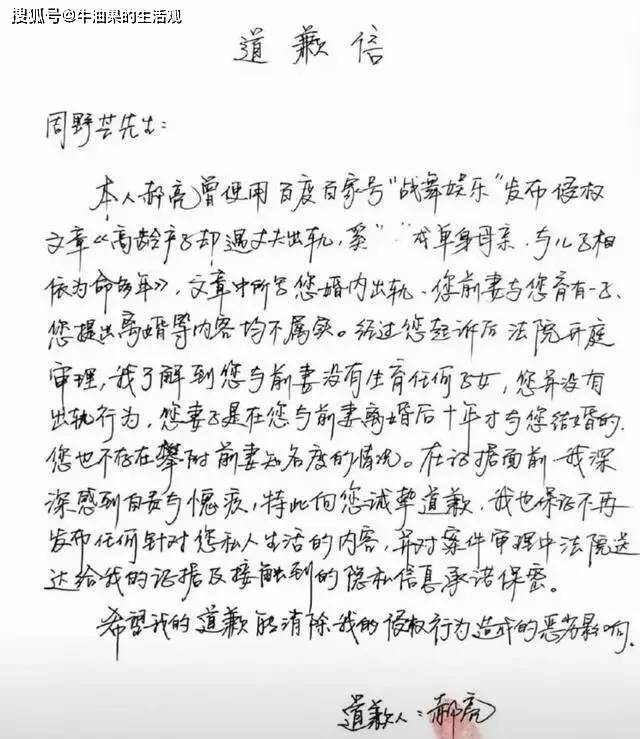 搜狐号@牛油果的生活观
道歉信
周野芒先生：
本人郝亮曾使用百度百家号"战舞娱乐"发布侵权
文章《高龄产子却遇丈夫出轨，奚" "戏单身母亲，与儿子相
依为命多年》，文章中所写您婚内出轨、您前妻与您育有一子、
您提出离婚等内容均不属实。经过您起诉后法院开庭
审理，我了解到您与前妻没有生育任何子女，您并没有
出轨行为，您妻子是在您与前妻离婚后十年才与您结婚的，
您也不存在攀附前妻知名度的情况。在证据面前我深
深感到自责与愧疚，特此向您诚挚道歉，我也保证不再
发布任何针对您私人生活的内容，并对案件审理中法院送
达给我的证据及接触到的隐私信息承诺保密。
希望我的道歉能消除我的侵权行为造成的恶劣影响。
道歉人：郝亮